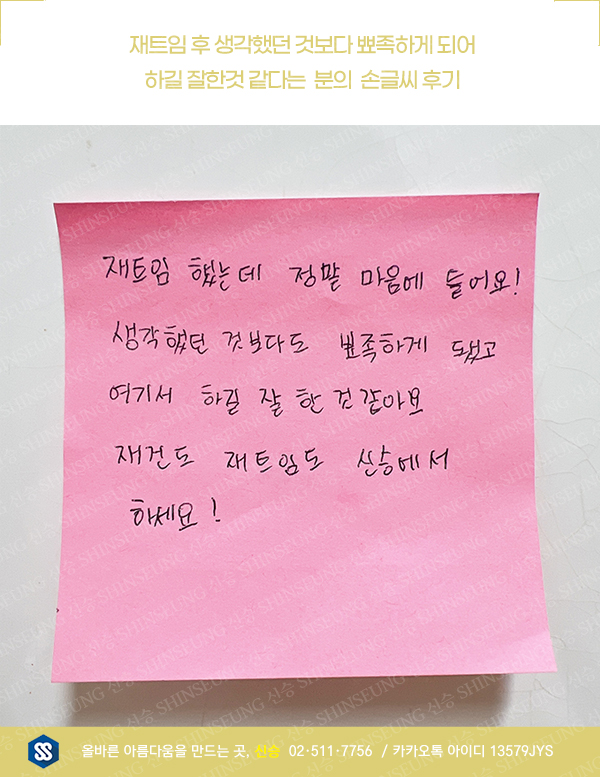 재트임 후 생각했던 것보다 뾰족하게 되어
하길 잘한것 같다는 분의 손글씨 후기
재트임 했는데 정말 마음에 들어요!
생각했던 것보다도 뾰족하게 됐고
여기서 하길 잘 한 것 같아요
재건도 재트임도 신승에서
하세요!
올바른 아름다움을 만드는 곳, 신승 02·511·7756 / 카카오톡 아이디 13579JYS
신승 SHINSEUNG